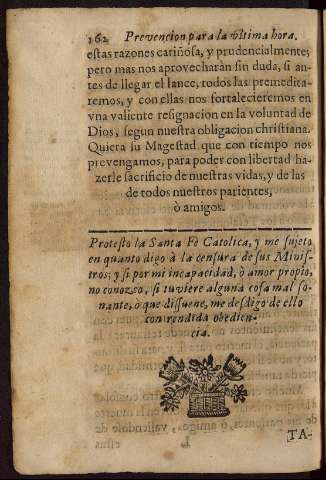 162 Prevencion para la vltima hora.
estas razones cariñosa, y prudencialmente;
pero mas nos aprovecharàn sin duda, si an-
tes de llegar el lance, todos las premedita-
remos, y con ellas nos fortalecieremos en
vna valiente resignacion en la voluntad de
Dios, segun nuestra obligacion christiana.
Quiera su Magestad que con tiempo nos
prevengamos, para poder con libertad ha-
zerle sacrificio de nuestras vidas, y de las
de todos nuestros parientes,
ò amigos.
Protesto la Santa Fè Catolica, y me sujeto
en quanto digo à la censura de sus Minis-
tros; y si por mi incapacidad, ò amor propio,
no conozco, si tuviere alguna cosa mal so-
nante, ò que dissuene, me desdigo de ello
con rendida obedien-
cia.
TA-